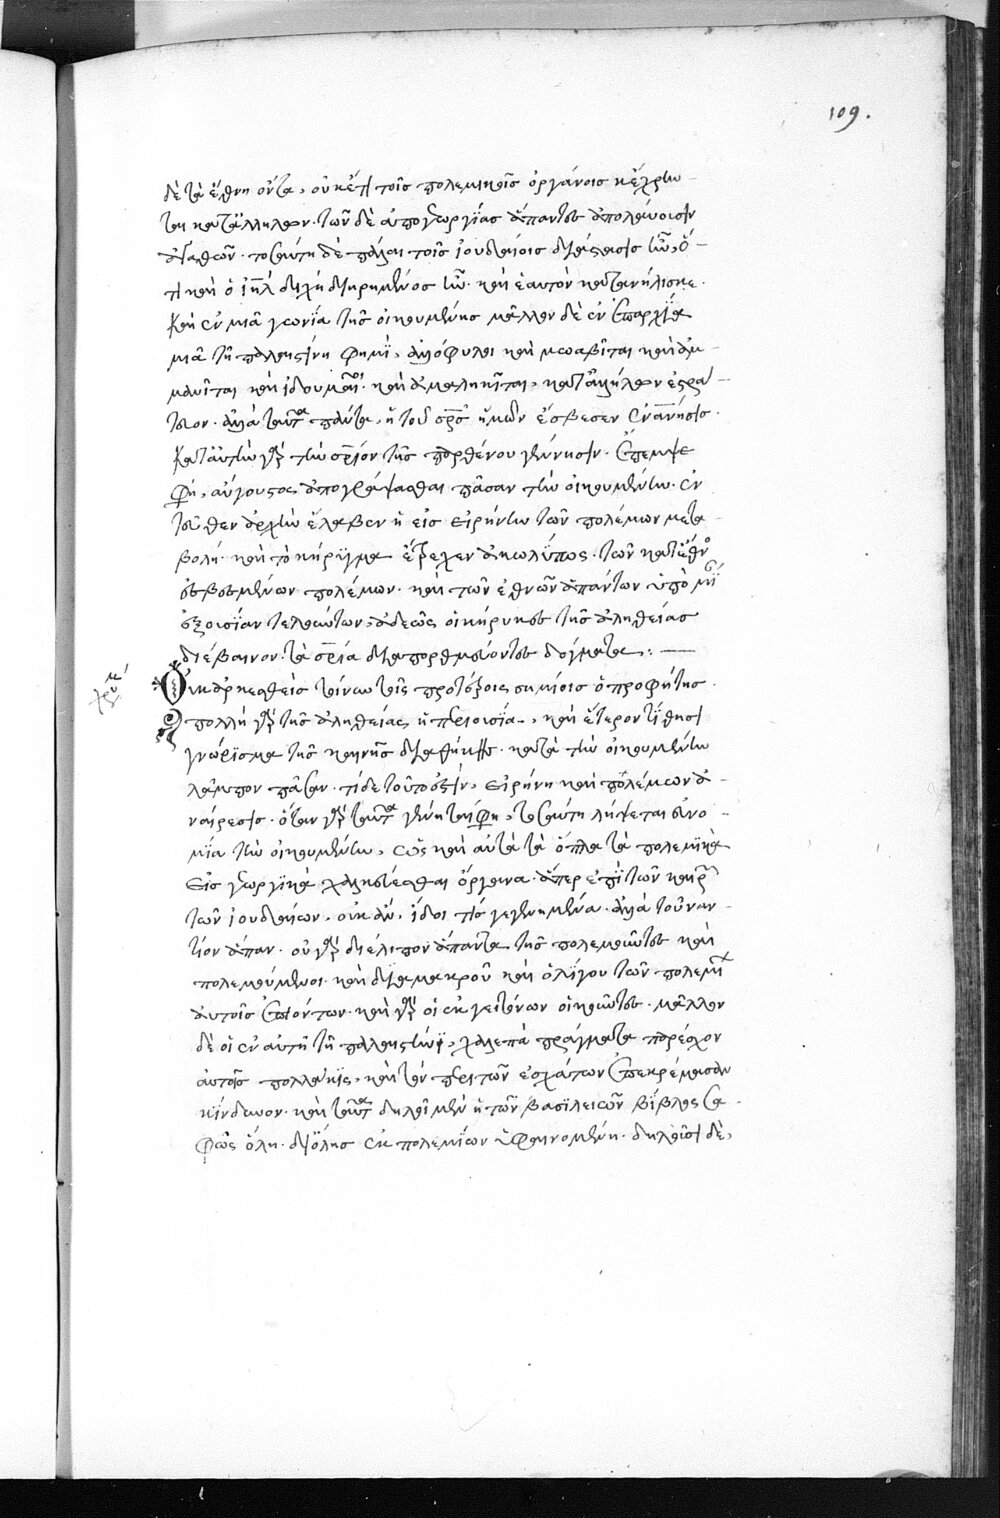 109.
δὲ τὰ ἔθνη ὄντα, οὐκέτι τοῖς πολεμικοῖς ὀργάνοις κέχρην
ται κατ' ἀλλήλων. τῶν δὲ ἀπὸ γεωργίας ἅπαντες ἀπολαύουσιν
ἀγαθῶν. τοσαύτη δὲ πάλαι τοῖς ἰουδαίοις διάστασις ἦν, ὅ
τι καὶ ὁ ἰηλ διχῇ διηρημένος ἦν. καὶ ἑαυτὸν κατανήλισκε.
καὶ ἐν μιᾷ γωνίᾳ τῆς οἰκουμένης μᾶλλον δὲ ἐν ἐπαρχίᾳ
μιᾷ τῇ παλαιστίνῃ φημὶ, ἀλλόφυλοι καὶ μωαβῖται καὶ ἀμ
μανῖται καὶ ἰδουμαῖοι. καὶ ἀμαληκῖται, κατ' ἀλλήλων ἐστρά
τευον. ἀλλὰ ταῦτα πάντα, ἡ τοῦ σρς ἡμῶν ἔσβεσεν ἐνανησις.
κατ' αὐτὴν γὰρ τὴν σριον τῆς παρθένου γέννησιν. ἔπεμψε
φη, αὔγουστος ἀπογράψασθαι πᾶσαν τὴν οἰκουμένην. ἐν
τεῦθεν ἀρχὴν ἔλαβεν ἡ εἰς εἰρήνην τῶν πολέμων μετα
βολή. καὶ τὸ κήρυγμα ἔτρεχεν ἀκωλύτως. τῶν κατ' ἔθνο
σβεσμένων πολέμων. καὶ τῶν ἐθνῶν ἁπάντων ὑπὸ μίαν
ἐξουσίαν τελούντων, ἀδεῶς οἱ κήρυκες τῆς ἀληθείας
διέβαινον. τὰ σρια διαπορθμεύοντες δόγματα:
Οὐκ ἀρκεσθεὶς τοίνυν τοῖς προτέροις σημείοις ὁ προφήτης.
πολλὴ γὰρ τῆς ἀληθείας ἡ περιουσία, καὶ ἕτερον τίθησι
γνώρισμα τῆς καινῆς διαθήκης. κατὰ τὴν οἰκουμένην
λάμπον πᾶσαν. τί δὲ τοῦτό ἐστιν, εἰρήνη καὶ πολέμων ἀ
ναίρεσις. ὅταν γὰρ ταῦτα γένηται φη, τοσαύτη λήψεται εὐνο
μία τὴν οἰκουμένην, ὡς καὶ αὐτὰ τὰ ὅπλα τὰ πολεμικὰ
εἰς γεωργικὰ χαλκεύεσθαι ὄργανα. ἅπερ ἐπὶ τῶν καιρῶ
τῶν ἰουδαίων, οὐκ ἂν, ἴδοι τίς γεγενημένα. ἀλλὰ τοὐναν
τίον ἅπαν. οὐ γὰρ διέλιπον ἅπαντα τῆς πολεμοῦντες καὶ
πολεμούμενοι. καὶ διὰ μακροῦ καὶ ὀλίγου τῶν πολεμίων
αὐτοῖς ἐπιόντων. καὶ γὰρ οἱ ἐκ γειτόνων οἰκοῦντες. μᾶλλον
δὲ οἱ ἐν αὐτῇ τῇ παλαιστίνῃ, χαλεπὰ πράγματα παρέσχον
αὐτοῖς πολλάκις, καὶ τὸν περὶ τῶν ἐσχάτων ἐπεκρέμασαν
κίνδυνον. καὶ ταῦτα δηλοῖ μὲν ἡ τῶν βασιλειῶν βίβλος σα
φῶς ὅλη. δι' ὅλης ἐκ πολεμίων ὑφαινομένη. δηλοῦσι δὲ,